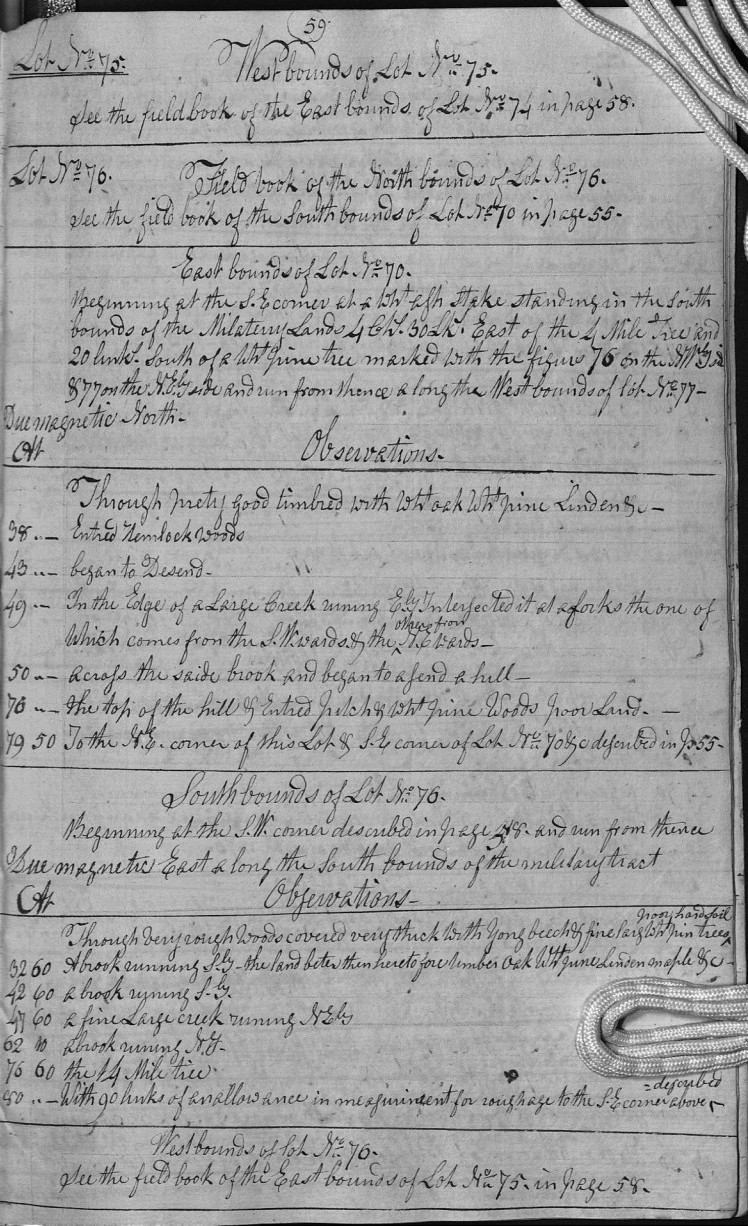 59
Lot No. 75. West bounds of Lot Nro. 75.
See the field book of the East bounds of Lot Nro. 74 in page 58.
Lot No. 76. Field book of the North bounds of Lot No. 76.
See the field book of the South bounds of Lot No. 70 in page 55.
East bounds of Lot No. 70.
Beginning at the S.E corner at a Wht ash Stake standing in the South
bounds of the Milatery Lands 4 Chs. 30 Lks. East of the 4 Mile Tree and
20 links South of a Wht pine tree marked with the figure 76 on the NWly sid
& 77 on the N.Ely side and run from thence along the West bounds of Lot No. 77-
Due magnetic North-
At Observations.
Through prety good timbred with Wht oak Wht pine Linden &c-
38 " - Entred Hemlock woods
43 " - began to Desend-
49 " - In the Edge of a Large Creek runing Ely Intersected it at a forks the one of
Which comes from the S.Wwards & the other from N.Ewards-
50 " - across the saide brook and began to assend a hill-
76 " - the top of the hill & Entred Pitch & Wht pine Woods poor Land. -
79 50 To the N.E. corner of this Lot & S.E corner of Lot Nro. 70 &c described in P. 55-
South bounds of Lot No. 76.
Beginning at the S.W. corner described in page 58. and run from thence
Due magnetic East along the South bounds of the military tract
At Observations-
Through very rough Woods covered very thick with yong beech & fine larg Wht pin trees poor hard soil
32 60 A brook running Sly- the land beter then heretofore timber Oak Wht pine Linden maple &c-
42 60 a brook runing S.ly.
47 60 a fine Large creek runing NEly
62 10 a brook runing N.ly-
76 60 the 14 Mile tree.
80 " - With 90 links of an allowance in measuringent for roughage to the S.E corner above described-
West bounds of lot No. 76.
See the field book of the East bounds of Lot Nro. 75. in page 58.